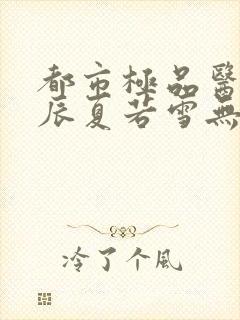 都市極品醫
辰夏若雪無
冷了个風